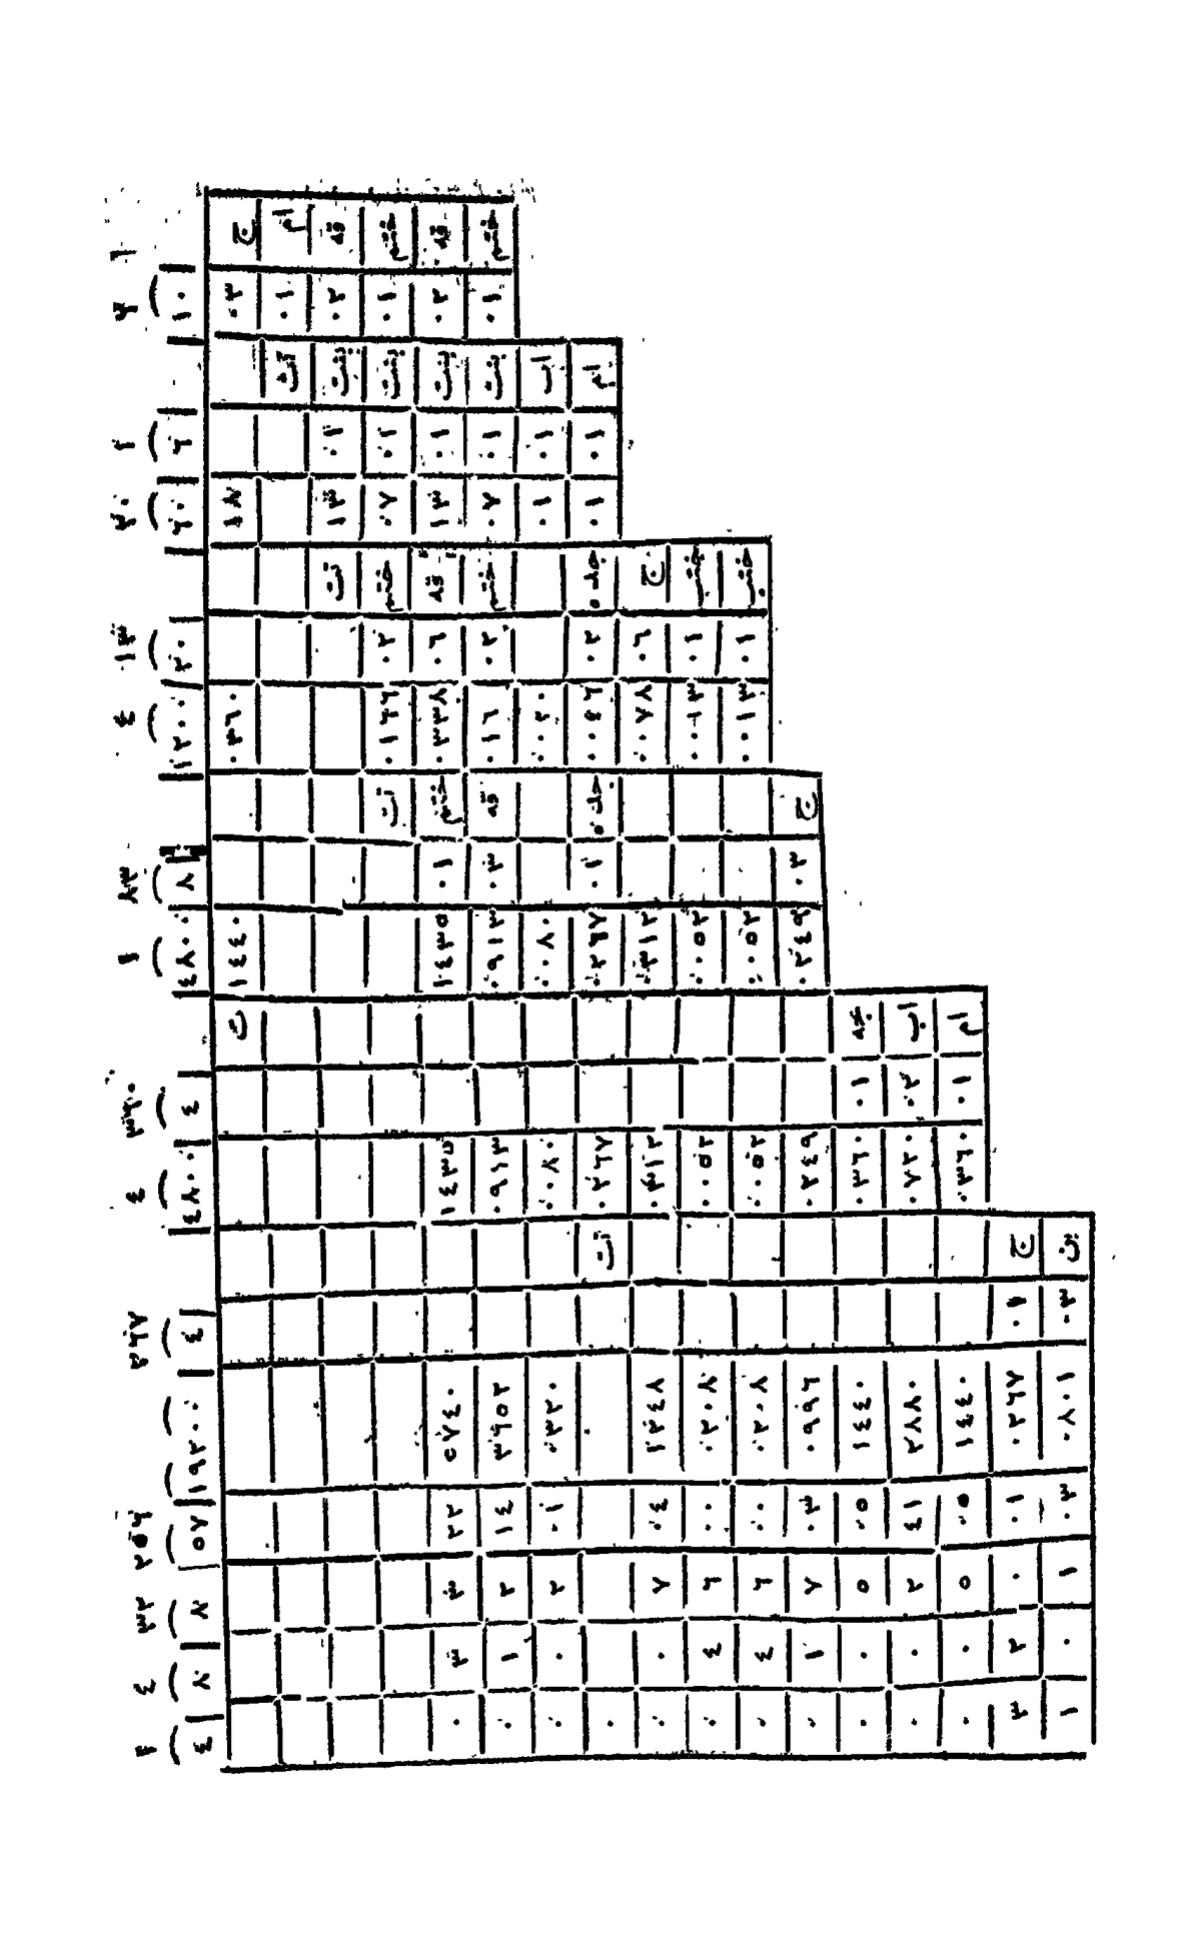 ٣ ١ ٣٠ ١٣ ٤ ٨٣ ١ ٣٦٠ ٤ ٢٦٧ ٢٥٦ ٣٢ ٤ ١
١٠ ٦ ٦٠ ٢٠ ١٢٠٠ ٨ ٤٨٠٠ ٤ ٤٨٠٠ ٤ ١٩٢٠٠ ٧٥ ٨ ٨ ٤
ج ٠٣ ١٨ ٠٣٦٠ ١٤٤٠ ت
ام ٠١ تت
قه ٠٢ بنت ٠١ ١٣ تت
ختم ٠١ بنت ٠١ ٠٧ ختم ٠٢ ٠١٦٦ تت
قه ٠٢ بنت ٠١ ١٣ قه ٠٦ ٠٣٣٨ ختم ٠١ ١٤٣٥ ١٤٣٥ ٥٧٤٠ ٢٢ ٣ ٣ ٠
ختم ٠١ بنت ٠١ ٠٧ ختم ٠٢ ٠١٦ قه ٠٣ ٠٩١٣ ٠٩١٣ ٣٦٥٢ ١٤ ٢ ١ ٠
اب ٠١ ٠١ ٠٠٢٠ ٠٠٨٠ ٠٠٨٠ ٠٣٢٠ ٠١ ٢ ٠ ٠
ام ٠١ ٠١ جده ٠٢ ٠٠٤٦ جده ٠١ ٠٢٦٧ ٠٢٦٧ تت ٠
ج ٠٦ ٠٠٧٨ ٠٣١٢ ٠٣١٢ ١٢٤٨ ٠٤ ٧ ٠ ٠
ختب ٠١ ٠٠١٣ ٠٠٥٢ ٠٠٥٢ ٠٢٠٨ ٠٠ ٦ ٤ ٠
ختب ٠١ ٠٠١٣ ٠٠٥٢ ٠٠٥٢ ٠٢٠٨ ٠٠ ٦ ٤ ٠
ج ٠٣ ٠٢٤٩ ٠٢٤٩ ٠٩٩٦ ٠٣ ٧ ١ ٠
٠١ ٠٣٦٠ ١٤٤٠ ٠٥ ٥ ٠ ٠
اب ٠٢ ٠٧٢٠ ٢٨٨٠ ١١ ٢ ٠ ٠
ام ٠١ ٠٣٦٠ ١٤٤٠ ٠٥ ٥ ٠ ٠
ج ٠١ ٠٢٦٧ ٠١ ٠ ٢ ٣
بن ٠٣ ٠٨٠١ ٠٣ ١ ٠ ١